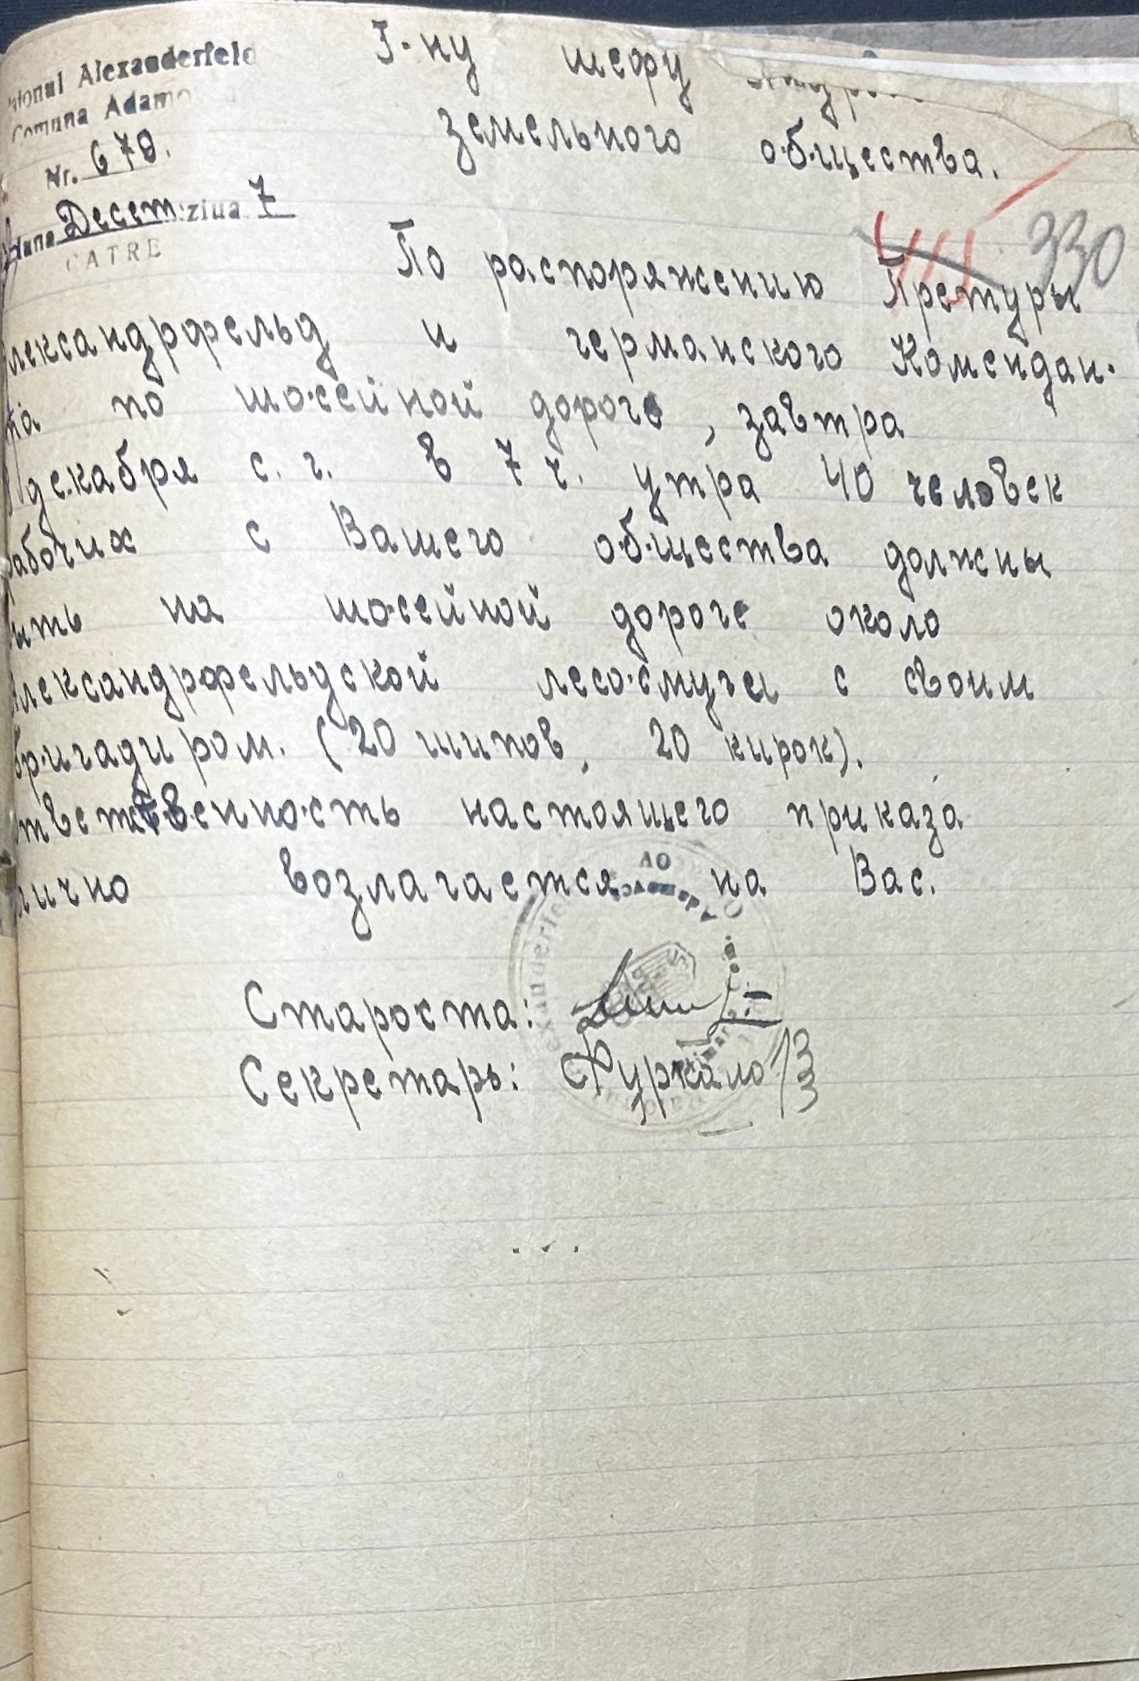 Г-ну шефу
земельного общества.
Alexanderfeld
Comuna Adamo
Nr. 679.
Decem ziua 7
CATRE
330
По распоряжению Претуры
лександрфельд и германского Комендан-
та по шосейной дороге, завтра
декабря с. г. в 7 ч. утра 40 человек
рабочих с Вашего общества должны
ыть на шосейной дороге около
лександрфельдской лесо-смуги с своим
бригадиром. (20 шипов, 20 кирок).
тветственность настоящего приказа
лично возлагается на Вас.
Староста:
Секретарь: Фуркало